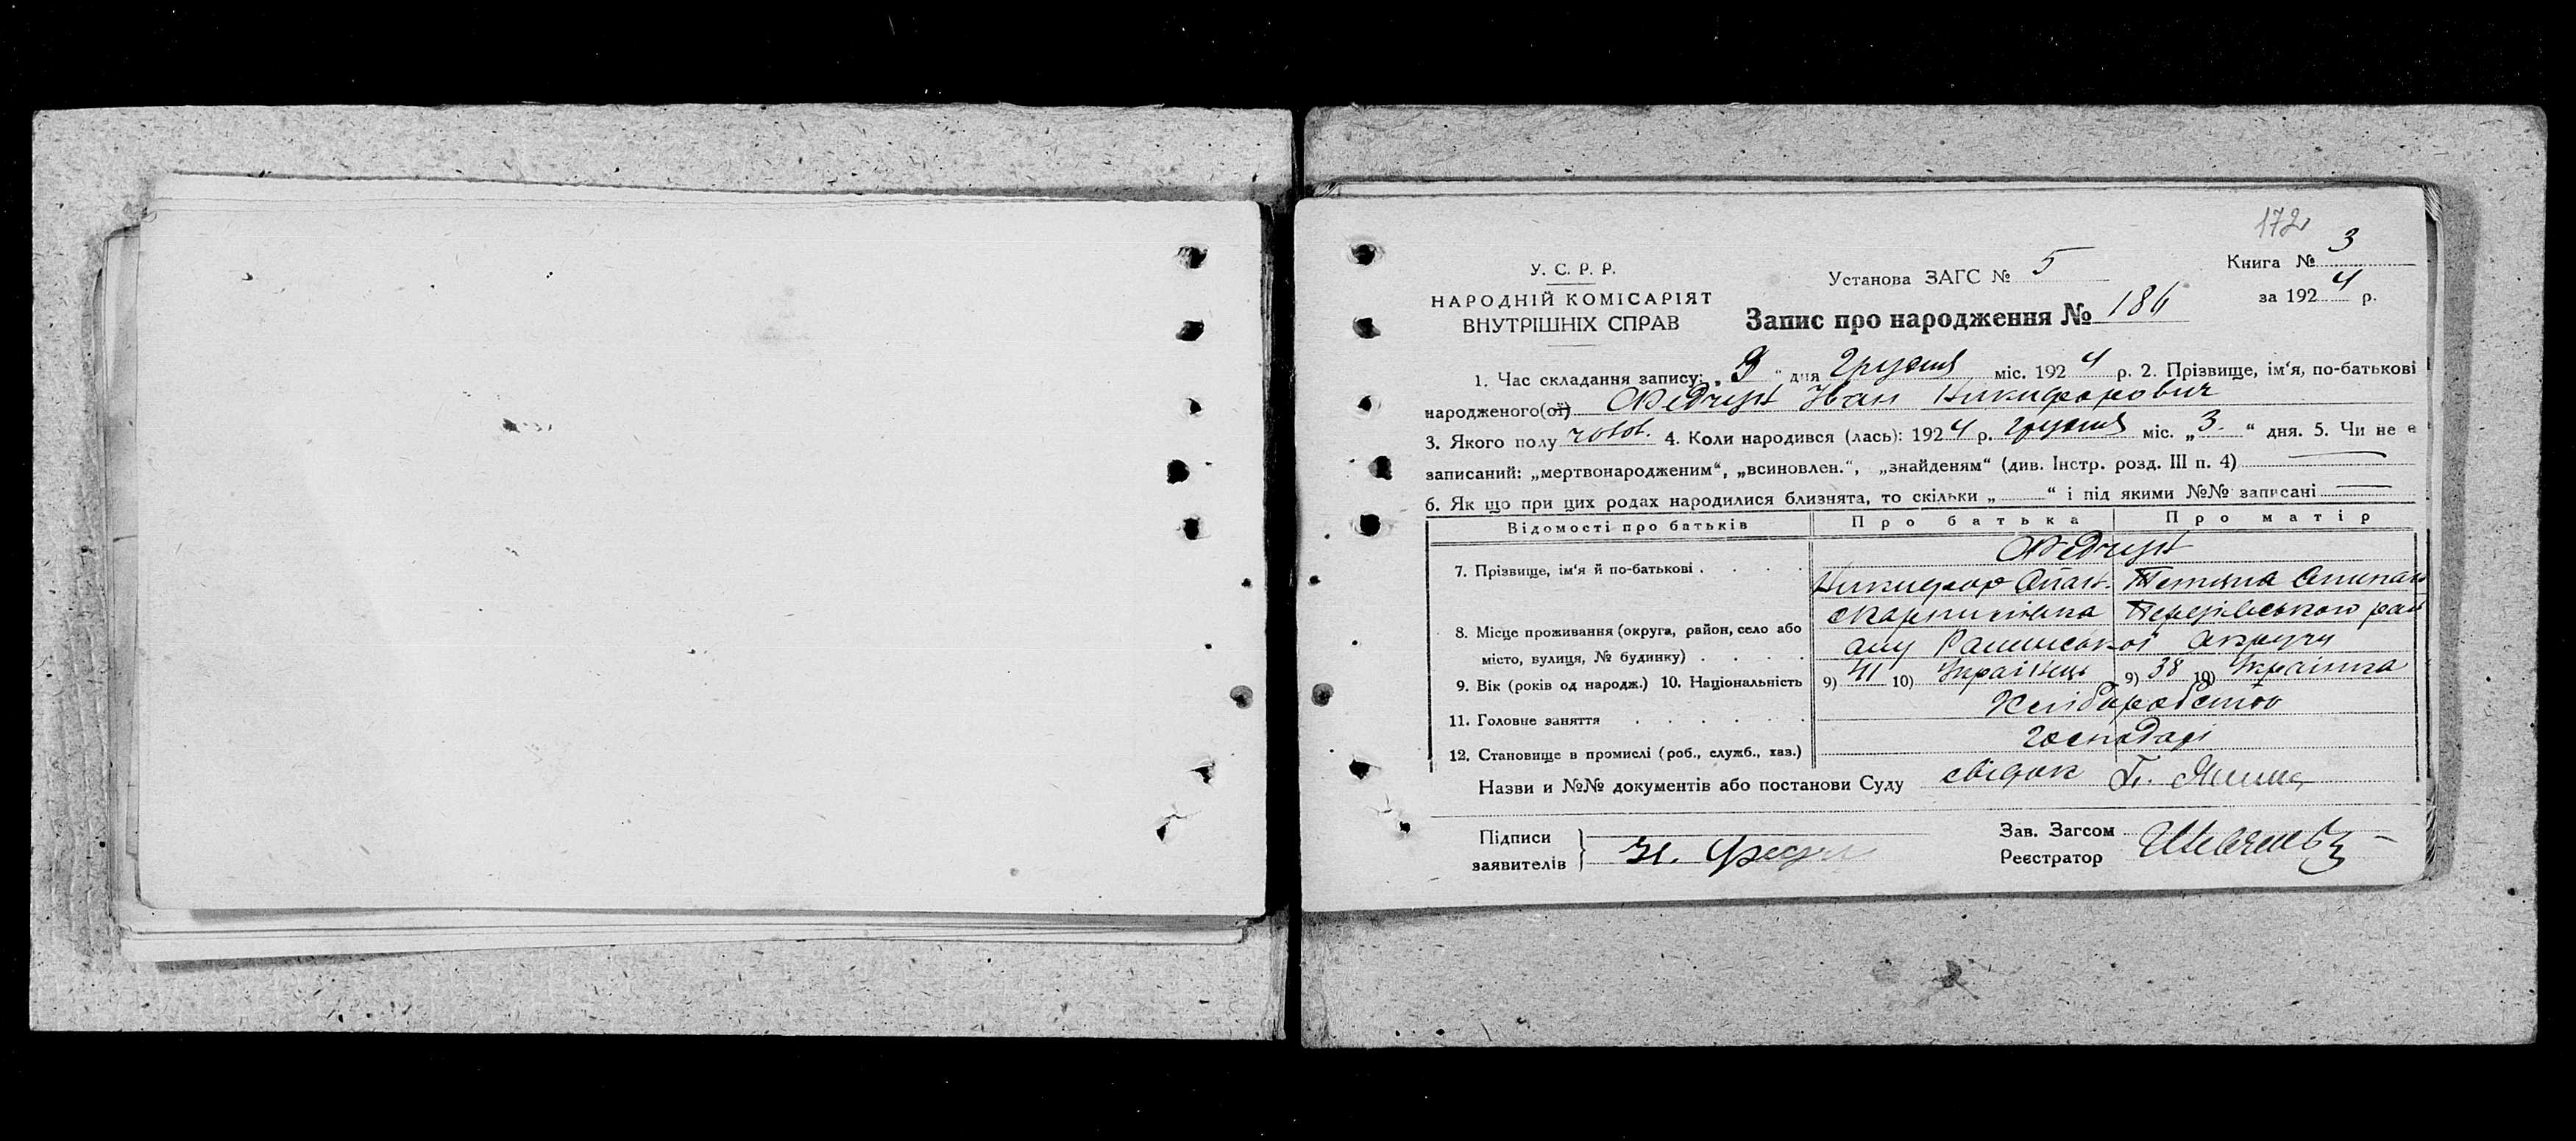 172
У. С. Р. Р.
НАРОДНІЙ КОМІСАРІЯТ
ВНУТРІШНІХ СПРАВ
Установа ЗАГС № 5
Книга № 3
за 1924 р.
Запис про народження № 186
1. Час складання запису: „9“ дня Грудня міс. 1924 р. 2. Прізвище, ім‘я, по-батькові
народженого(ої) Федчун Іван Никифорович
3. Якого полу чолов. 4. Коли народився (лась): 1924 р. Грудня міс. „3“ дня. 5. Чи не є
записаний: „мертвонародженим“, „всиновлен.“, „знайденям“ (див. Інстр. розд. III п. 4)
6. Як що при цих родах народилися близнята, то скільки „ “ і під якими №№ записані
Відомості про батьків Про батька Про матір
Федчун
7. Прізвище, ім‘я й по-батькові . . . . Никифор Опан. Тетяна
8. Місце проживання (округа, район, село або
місто, вулиця, № будинку) . . . . ону Роменської округи
9. Вік (років од народж.) 10. Національність 9) 41 10) Українець 9) 38 10) Українка
11. Головне заняття . . . . . . Хліборобство
12. Становище в промислі (роб., служб., хаз.) Господарі
Назви и №№ документів або постанови Суду свідок
Підписи
заявителів
Зав. Загсом
Реєстратор